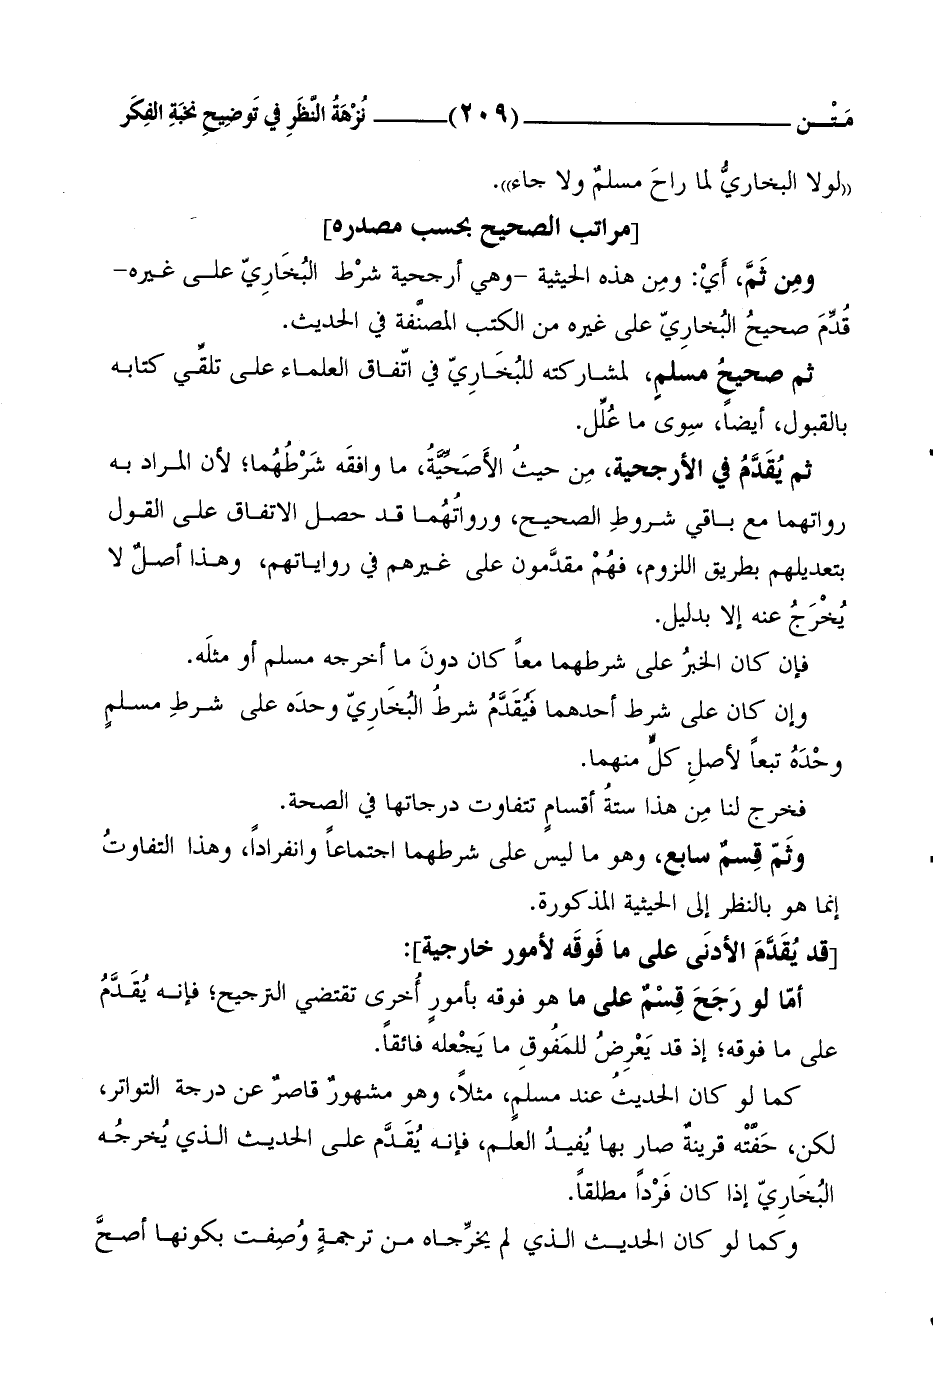 مَتْـن ــــــــــ (٢٠٩) ــــــــــ نُزْهَةُ النَّظَرِ في تَوضِيحِ نُخبَةِ الفِكَر
((لولا البخاريُّ لما راحَ مسلمٌ ولا جاء)).
[مراتب الصحيح بحسب مصدره]
ومِن ثَمَّ، أَيْ: ومِن هذه الحيثية -وهي أرجحية شرْط البُخَارِيّ على غيره-
قُدِّمَ صحيحُ البُخاريّ على غيره من الكتب المصنَّفة في الحديث.
ثم صحيحُ مسلمٍ، لمشاركته للبُخَارِيّ في اتّفاق العلماء على تلقِّي كتابه
بالقبول، أيضاً، سِوى ما عُلِّل.
ثم يُقَدَّمُ في الأرجحية، مِن حيثُ الأَصَحِّيَّةُ، ما وافقَه شَرْطُهُما؛ لأن المراد به
رواتهما مع باقي شروطِ الصحيح، ورواتُهُما قد حصل الاتفاق على القول
بتعديلهم بطريق اللزوم، فهُمْ مقدَّمون على غيرهم في رواياتهم، وهذا أصلٌ لا
يُخْرَجُ عنه إلا بدليل.
فإن كان الخبرُ على شرطهما معاً كان دونَ ما أخرجه مسلم أو مثلَه.
وإن كان على شرط أحدهما فَيُقَدَّمُ شرطُ البُخَارِيّ وحدَه على شرطِ مسلمٍ
وحْدَهُ تبعاً لأصلِ كلٍّ منهما.
فخرج لنا مِن هذا ستةُ أقسامٍ تتفاوت درجاتها في الصحة.
وثَمّ قِسمٌ سابع، وهو ما ليس على شرطهما اجتماعاً وانفراداً، وهذا التفاوتُ
إنما هو بالنظر إلى الحيثية المذكورة.
[قد يُقَدَّمَ الأدنَى على ما فَوقَه لأمور خارجية]:
أمّا لو رَجَحَ قِسْمٌ على ما هو فوقه بأمورٍ أُخرى تقتضي الترجيح؛ فإنه يُقَدَّمُ
على ما فوقه؛ إذ قد يَعْرِضُ للمَفُوقِ ما يَجْعله فائقاً.
كما لو كان الحديثُ عند مسلمٍ، مثلاً، وهو مشهورٌ قاصرٌ عن درجة التواتر،
لكن، حَفَّتْه قرينةٌ صار بها يُفيدُ العلم، فإنه يُقَدَّم على الحديث الذي يُخرجُه
البُخَارِيّ إذا كان فَرْداً مطلقاً.
وكما لو كان الحديث الذي لم يخرِّجاه من ترجمةٍ وُصِفت بكونها أصحَّ